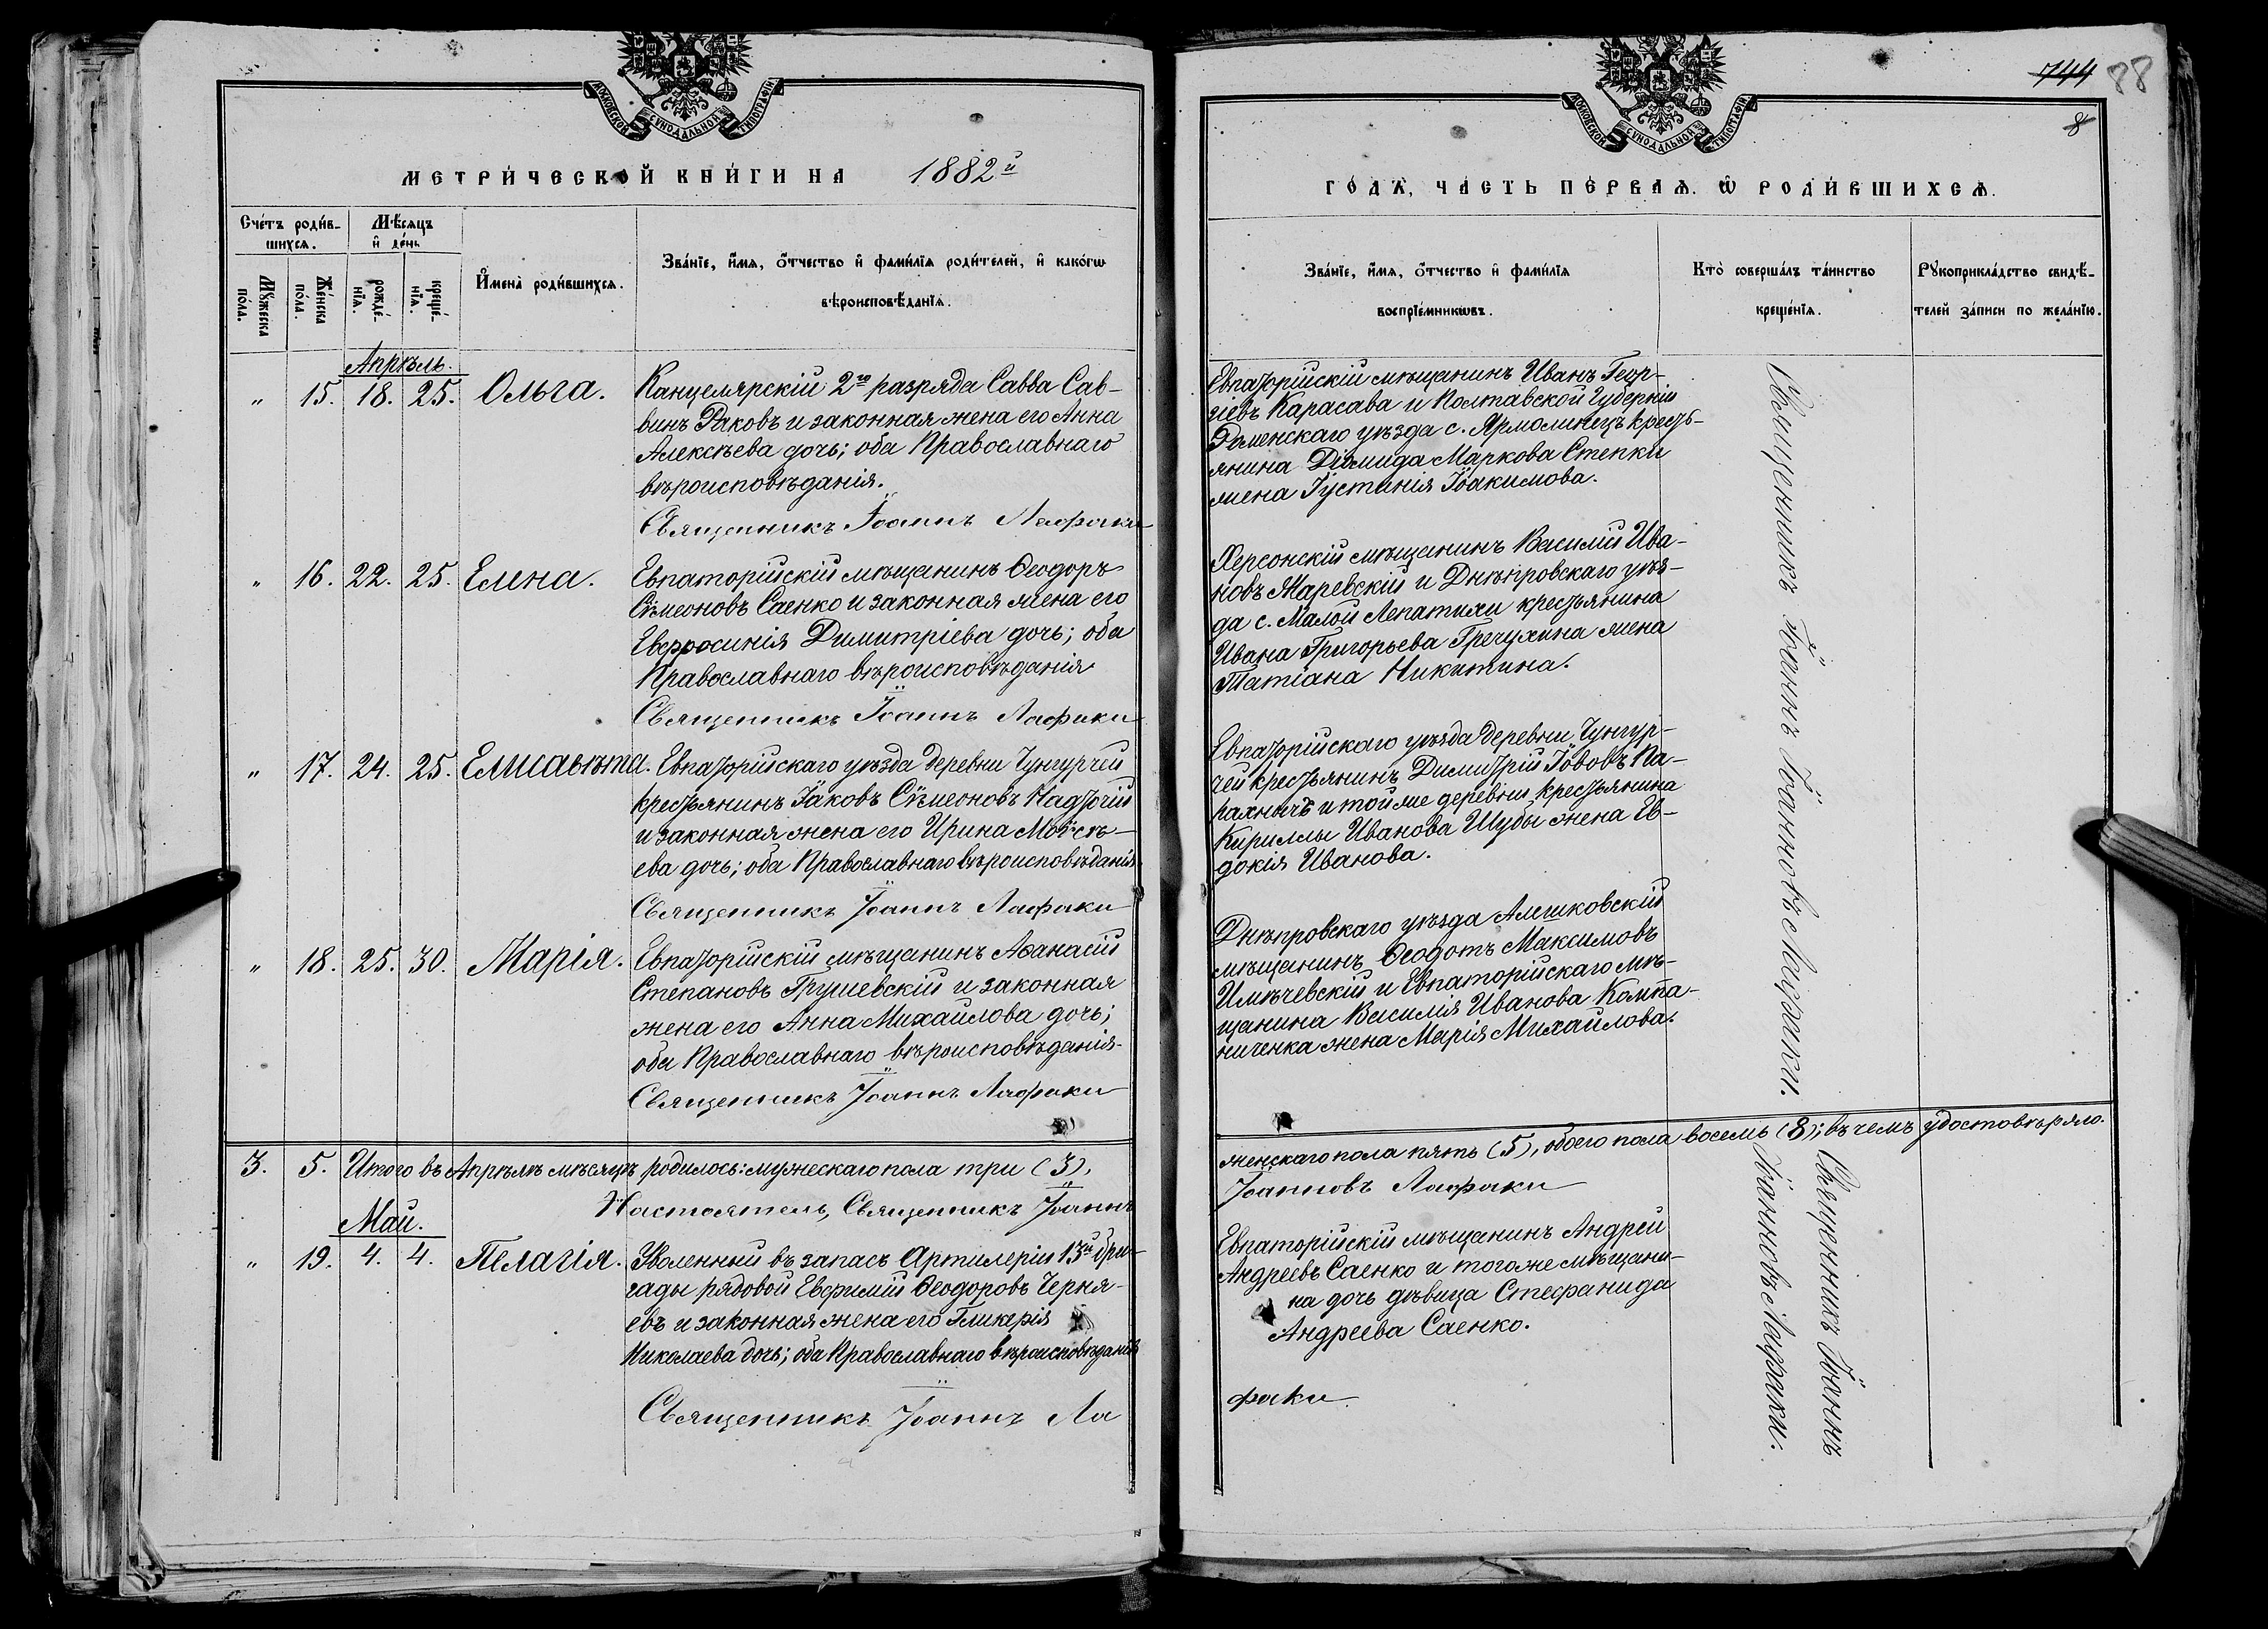 МОСКОВСКОЙ СѴНОДАЛЬНОЙ ТИПОГРАФІИ
МЕТРИ́ЧЕСКОЙ КНИ́ГИ НА 1882й
Сче́тъ роди́в-
шихся.
Мѣ́сяцъ
и҆ де́нь
Мꙋ́жеска
по́ла.
Же́нска
по́ла.
рожде́-
нїя.
креще́-
нїя.
И҆мена̀ роди́вшихся.
Зва́нїе, и҆́мя, ѻ҆́тчество и҆ фами́лїя роди́телей, и҆ како́гѡ
вѣроисповѣ́данїя.
Апрѣль.
„ 15. 18. 25. Ольга. Канцелярскій 2го разряда Савва Сав-
винъ Раковъ и законная жена его Анна
Алексѣева дочь; оба Православнаго
вѣроисповѣданія.
Священникъ Іоаннъ Лафаки
„ 16. 22. 25. Елена. Евпаторійскій мѣщанинъ Ѳеодоръ
Сѵмеоновъ Саенко и законная жена его
Евфросинія Димитріева дочь; оба
Православнаго вѣроисповѣданія
Священникъ Іоаннъ Лафаки
„ 17. 24. 25. Елисавѣта. Евпаторійскаго уѣзда деревни Чунгурчей
крестьянинъ Іаковъ Сѵмеоновъ Надточій
и законная жена его Ирина Моѵсѣ-
ева дочь; оба Православнаго вѣроисповѣданія
Священникъ Іоаннъ Лафаки
„ 18. 25. 30. Марія. Евпаторійскій мѣщанинъ Аѳанасій
Степановъ Грушевскій и законная
жена его Анна Михайлова дочь;
оба Православнаго вѣроисповѣданія
Священникъ Іоаннъ Лафаки
3. 5. Итого въ Апрѣлѣ мѣсяцѣ родилось: мужескаго пола три (3),
Настоятель, Священникъ Іоаннъ
Май.
„ 19. 4. 4. Пелагія. Уволенный въ запасъ Артилеріи 13й бри-
гады рядовой Евфимій Ѳеодоровъ Черня-
евъ и законная жена его Гликерія
Николаева дочь; оба Православнаго вѣроисповѣданія
Священникъ Іоаннъ Ла
744 88
8
МОСКОВСКОЙ СѴНОДАЛЬНОЙ ТИПОГРАФІИ
ГО́ДЪ, ЧА́СТЬ ПЕ́РВАѦ. Ѡ҆ РОДИ́ВШИХСѦ.
Зва́нїе, и҆́мя, ѻ҆́тчество и҆ фами́лїя
воспрїе́мникѡвъ.
Кто̀ соверша́лъ та́инство
креще́нїя.
Рꙋкоприкла́дство свидѣ́-
телей за́писи по жела́нїю.
Евпаторійскій мѣщанинъ Иванъ Геор-
гіевъ Карасава и Полтавской Губерніи
Роменскаго уѣзда с. Ярмолинецъ кресть-
янина Діомида Маркова Степки
жена Іустинія Іоакимова.
Херсонскій мѣщанинъ Василій Ива-
новъ Маревскій и Днѣпровскаго уѣз-
да с. Малой Лепатихи крестьянина
Ивана Григорьева Гречухина жена
Татіана Никитина.
Евпаторійскаго уѣзда деревни Чунгур-
чей крестьянинъ Димитрій Іововъ Па-
рахничъ и той же деревни крестьянина
Кириллы Иванова Шубы жена Ев-
докія Иванова.
Днѣпровскаго уѣзда Алешковскій
мѣщанинъ Ѳеодотъ Максимовъ
и Евпаторійскаго мѣ-
щанина Василія Иванова Компа-
ниченка жена Марія Михайлова.
Священникъ Іоаннъ Іоанновъ Лафаки.
женскаго пола пять (5), обоего пола восемь (8); въ чемъ удостовѣряю.
Іоанновъ Лафаки
Евпаторійскій мѣщанинъ Андрей
Андреевъ Саенко и тогоже мѣщани-
на дочь дѣвица Стефанида
Андреева Саенко.
факи.
Священникъ Іоаннъ
Іоанновъ Лафаки.